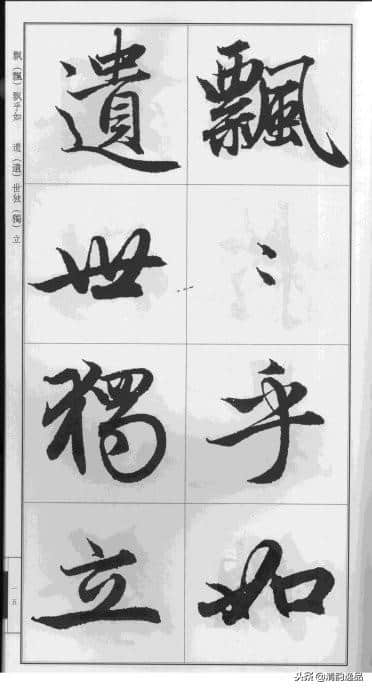 飄〻乎如
遺世獨立
飘（飄）飘乎如　遗（遺）世独（獨）立
一五
头条@清韵逸品